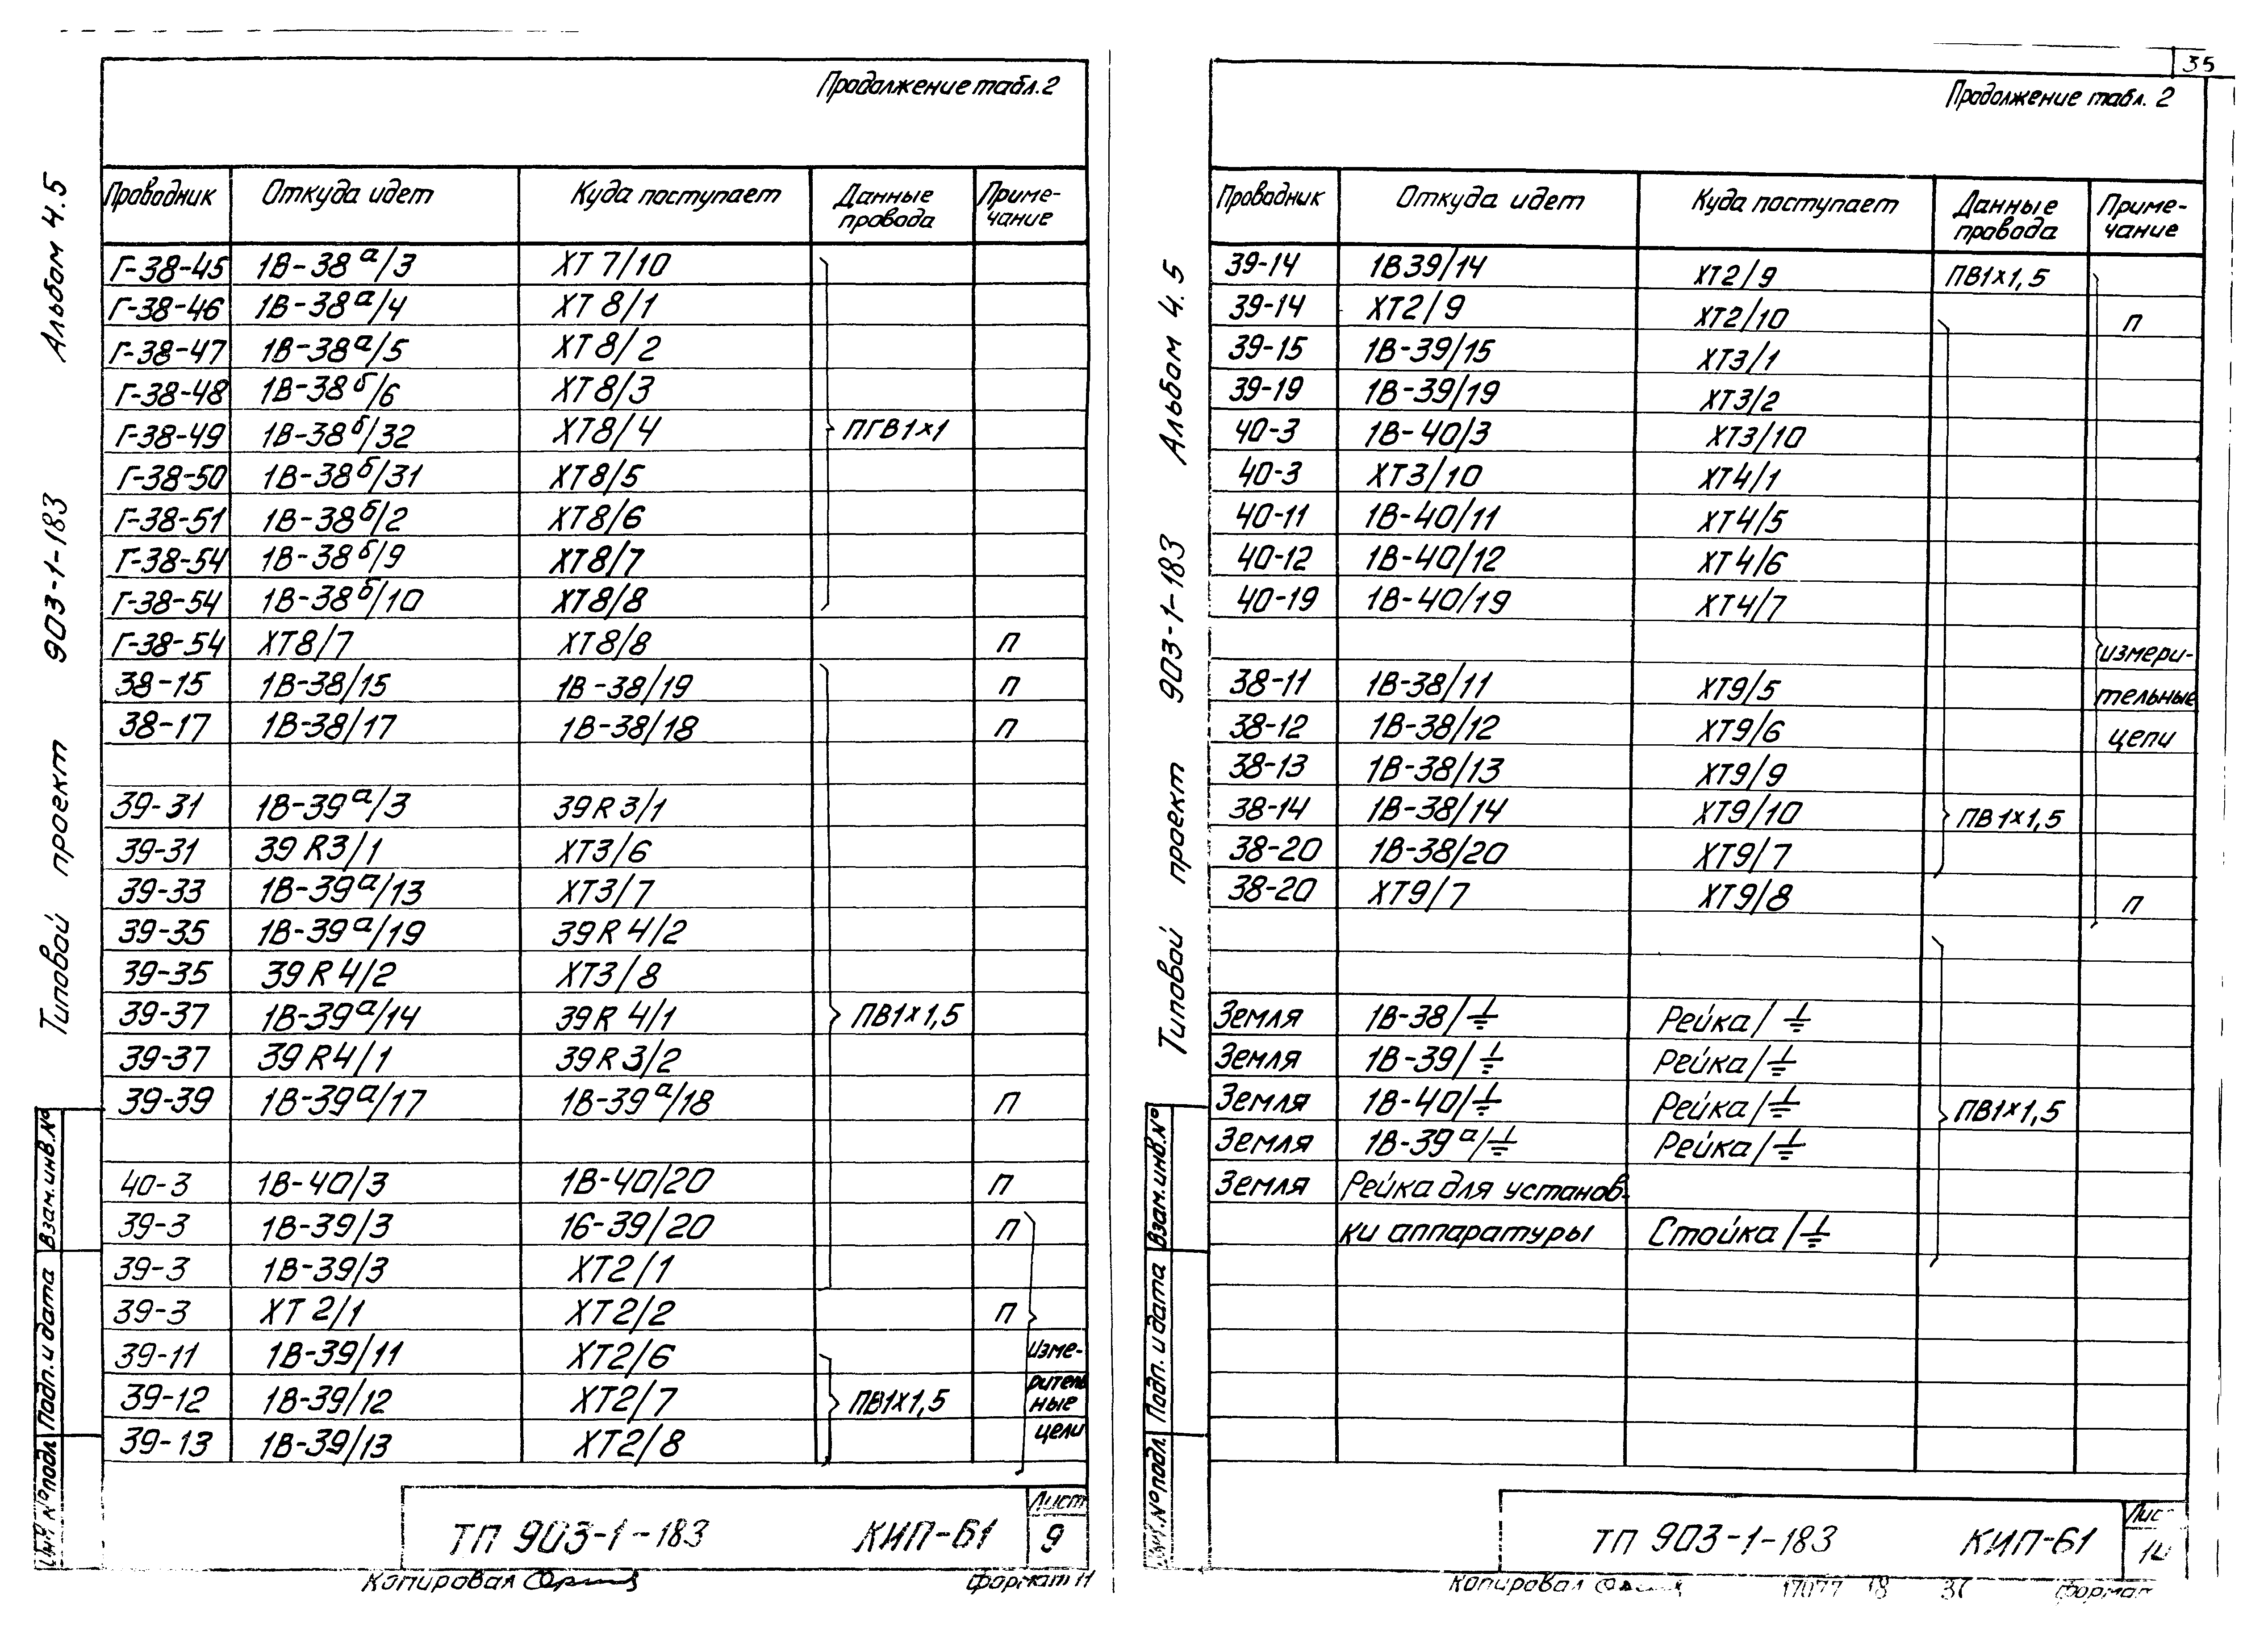 Продолжение табл.2
Проводник Откуда идет Куда поступает Данные провода Приме-чание
Г-38-45 1В-38а/3 ХТ7/10
Г-38-46 1В-38а/4 ХТ8/1
Г-38-47 1В-38а/5 ХТ8/2
Г-38-48 1В-38б/6 ХТ8/3
Г-38-49 1В-38б/32 ХТ8/4 ПГВ1×1
Г-38-50 1В-38б/31 ХТ8/5
Г-38-51 1В-38б/2 ХТ8/6
Г-38-54 1В-38б/9 ХТ8/7
Г-38-54 1В-38б/10 ХТ8/8
Г-38-54 ХТ8/7 ХТ8/8 п
38-15 1В-38/15 1В-38/19 п
38-17 1В-38/17 1В-38/18 п
39-31 1В-39а/3 39R3/1
39-31 39R3/1 ХТ3/6
39-33 1В-39а/13 ХТ3/7
39-35 1В-39а/19 39R4/2
39-35 39R4/2 ХТ3/8
39-37 1В-39а/14 39R4/1 ПВ1×1,5
39-37 39R4/1 39R3/2
39-39 1В-39а/17 1В-39а/18 п
40-3 1В-40/3 1В-40/20 п
39-3 1В-39/3 16-39/20 п
39-3 1В-39/3 ХТ2/1
39-3 ХТ2/1 ХТ2/2 п
39-11 1В-39/11 ХТ2/6 изме-
39-12 1В-39/12 ХТ2/7 ПВ1×1,5 ритель ные
39-13 1В-39/13 ХТ2/8 цепи
ТП 903-1-183 КИП-61 Лист 9
Копировал формат 11
Альбом 4.5
903-1-183
Типовой проект
Взам.инв.№
Подп. и дата
Инв №подл
35
Продолжение табл. 2
Проводник Откуда идет Куда поступает Данные провода Приме-чание
39-14 1В39/14 ХТ2/9 ПВ1×1,5
39-14 ХТ2/9 ХТ2/10 п
39-15 1В-39/15 ХТ3/1
39-19 1В-39/19 ХТ3/2
40-3 1В-40/3 ХТ3/10
40-3 ХТ3/10 ХТ4/1
40-11 1В-40/11 ХТ4/5
40-12 1В-40/12 ХТ4/6
40-19 1В-40/19 ХТ4/7
измери-
38-11 1В-38/11 ХТ9/5 тельные
38-12 1В-38/12 ХТ9/6 цепи
38-13 1В-38/13 ХТ9/9
38-14 1В-38/14 ХТ9/10 ПВ1×1,5
38-20 1В-38/20 ХТ9/7
38-20 ХТ9/7 ХТ9/8 п
Земля 1В-38/⏚ Рейка/⏚
Земля 1В-39/⏚ Рейка/⏚
Земля 1В-40/⏚ Рейка/⏚ ПВ1×1,5
Земля 1В-39а/⏚ Рейка/⏚
Земля Рейка для установ-
ки аппаратуры Стойка/⏚
ТП 903-1-183 КИП-61 Лис 10
Копировал 17077 18 формат
Альбом 4.5
903-1-183
Типовой проект
Взам.инв.№
Подп. и дата
Инв.№подл.